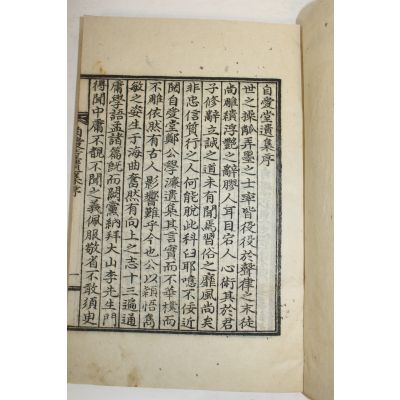 自愛堂遺集序
世之操觚弄墨之士率皆役役於聲律之末徒
尚雕繢淳艷之辭膠人耳目宕人心術其於君
子修辭立誠之道未有聞焉習俗之靡風尚矣
非忠信質行之人何能脫此科臼耶噫不佞近
閱自愛堂鄭公學濂遺集其言實而不華樸而
不雕依然有古人影響難乎今也公以穎悟雋
敏之姿生于海曲奮然有向上之志十三遍通
庸學語孟諸篇旣而嗣黨納拜大山李先生門
得聞中庸不覩不聞之義佩服敬省不敢須臾
自愛堂遺集序
一